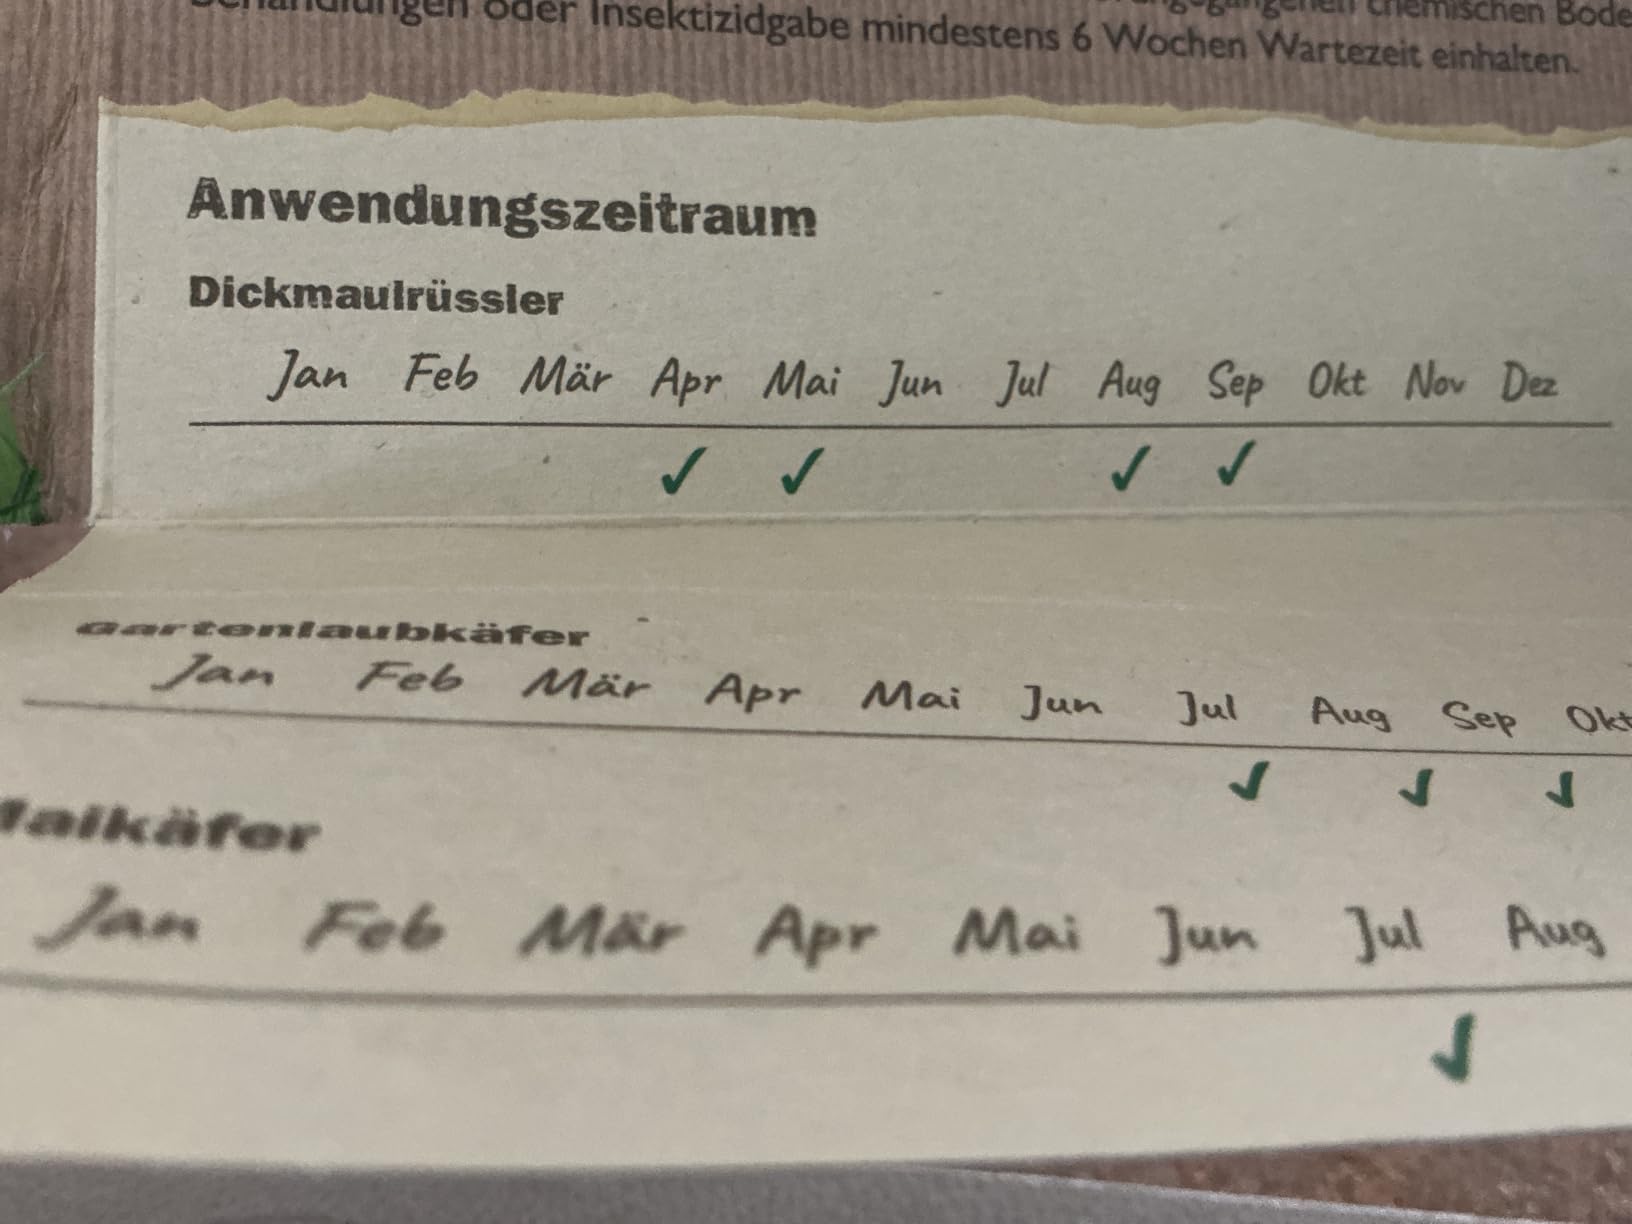 oder Insektizidgabe mindestens 6 Wochen Wartezeit einhalten.
Anwendungszeitraum
Dickmaulrüssler
Jan Feb Mär Apr Mai Jun Jul Aug Sep Okt Nov Dez
✓ ✓ ✓ ✓
Gartenlaubkäfer
Jan Feb Mär Apr Mai Jun Jul Aug Sep Okt
✓ ✓ ✓
Maikäfer
Jan Feb Mär Apr Mai Jun Jul Aug
✓